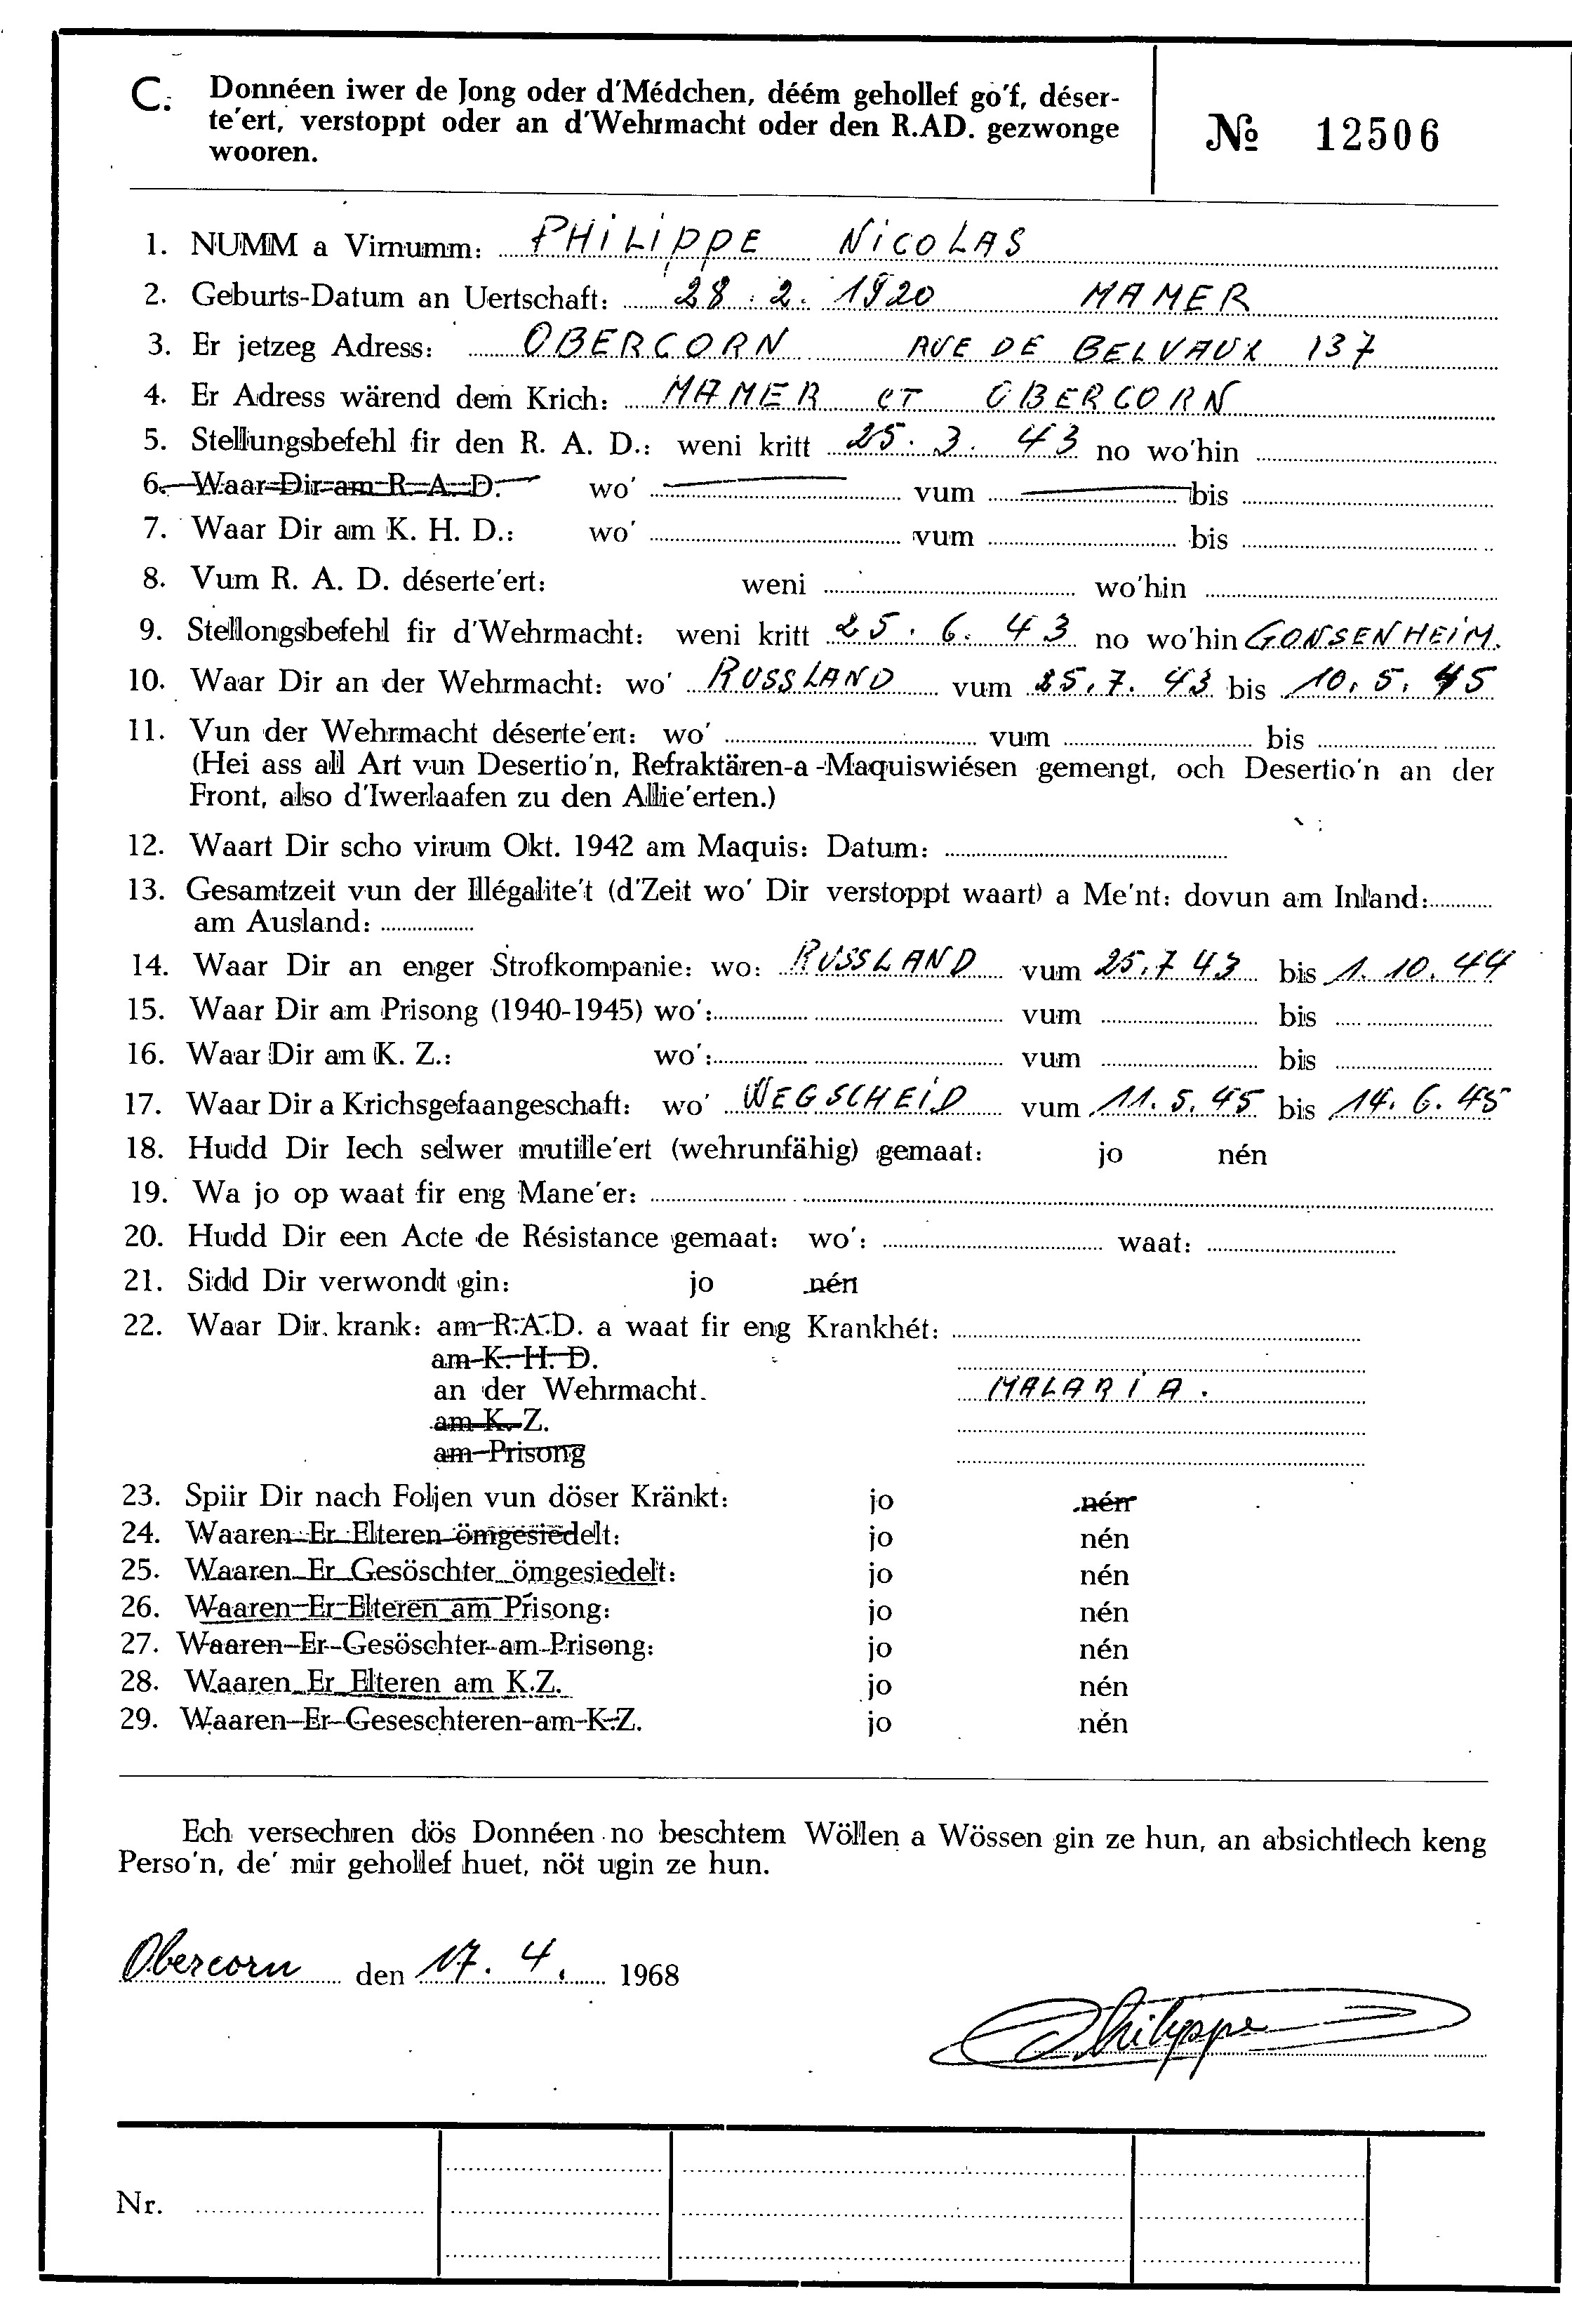 C. Donnéen iwer de Jong oder d'Médchen, déém gehollef go'f, déser-
te'ert, verstoppt oder an d'Wehrmacht oder den R.AD. gezwonge
wooren.
№ 12506
1. NUMM a Virnumm: PHILIPPE NICOLAS
2. Geburts-Datum an Uertschaft: 28.2.1920 MAMER
3. Er jetzeg Adress: OBERCORN RUE DE BELVAUX 137
4. Er Adress wärend dem Krich: MAMER ET OBERCORN
5. Stellungsbefehl fir den R. A. D.: weni kritt 25.3.43 no wo'hin
6. Waar Dir am R. A. D. wo' vum bis
7. Waar Dir am K. H. D.: wo' vum bis
8. Vum R. A. D. déserte'ert: weni wo'hin
9. Stellongsbefehl fir d'Wehrmacht: weni kritt 25.6.43 no wo'hin GONSENHEIM.
10. Waar Dir an der Wehrmacht: wo' RUSSLAND vum 25.7.43 bis 10.5.45
11. Vun der Wehrmacht déserte'ert: wo' vum bis
(Hei ass all Art vun Desertio'n, Refraktären-a-Maquiswiésen gemengt, och Desertio'n an der
Front, also d'Iwerlaafen zu den Allie'erten.)
12. Waart Dir scho virum Okt. 1942 am Maquis: Datum:
13. Gesamtzeit vun der Illégalite't (d'Zeit wo' Dir verstoppt waart) a Me'nt: dovun am Inland:
am Ausland:
14. Waar Dir an enger Strofkompanie: wo: RUSSLAND vum 25.7 43 bis 1.10.44
15. Waar Dir am Prisong (1940-1945) wo': vum bis
16. Waar Dir am K. Z.: wo': vum bis
17. Waar Dir a Krichsgefaangeschaft: wo' WEGSCHEID vum 11.5.45 bis 14.6.45
18. Hudd Dir Iech selwer mutille'ert (wehrunfähig) gemaat: jo nén
19. Wa jo op waat fir eng Mane'er:
20. Hudd Dir een Acte de Résistance gemaat: wo': waat:
21. Sidd Dir verwondt gin: jo nén
22. Waar Dir krank: am R.A.D. a waat fir eng Krankhét:
am K. H. D.
an der Wehrmacht. MALARIA.
am K. Z.
am Prisong
23. Spiir Dir nach Foljen vun döser Kränkt: jo nén
24. Waaren Er Elteren ömgesiedelt: jo nén
25. Waaren Er Gesöschter ömgesiedelt: jo nén
26. Waaren Er Elteren am Prisong: jo nén
27. Waaren Er Gesöschter am Prisong: jo nén
28. Waaren Er Elteren am K.Z. jo nén
29. Waaren Er Geseschteren am K.Z. jo nén
Ech versechren dös Donnéen no beschtem Wöllen a Wössen gin ze hun, an absichtlech keng
Perso'n, de' mir gehollef huet, nöt ugin ze hun.
Obercorn den 17.4. 1968
Philippe
Nr.